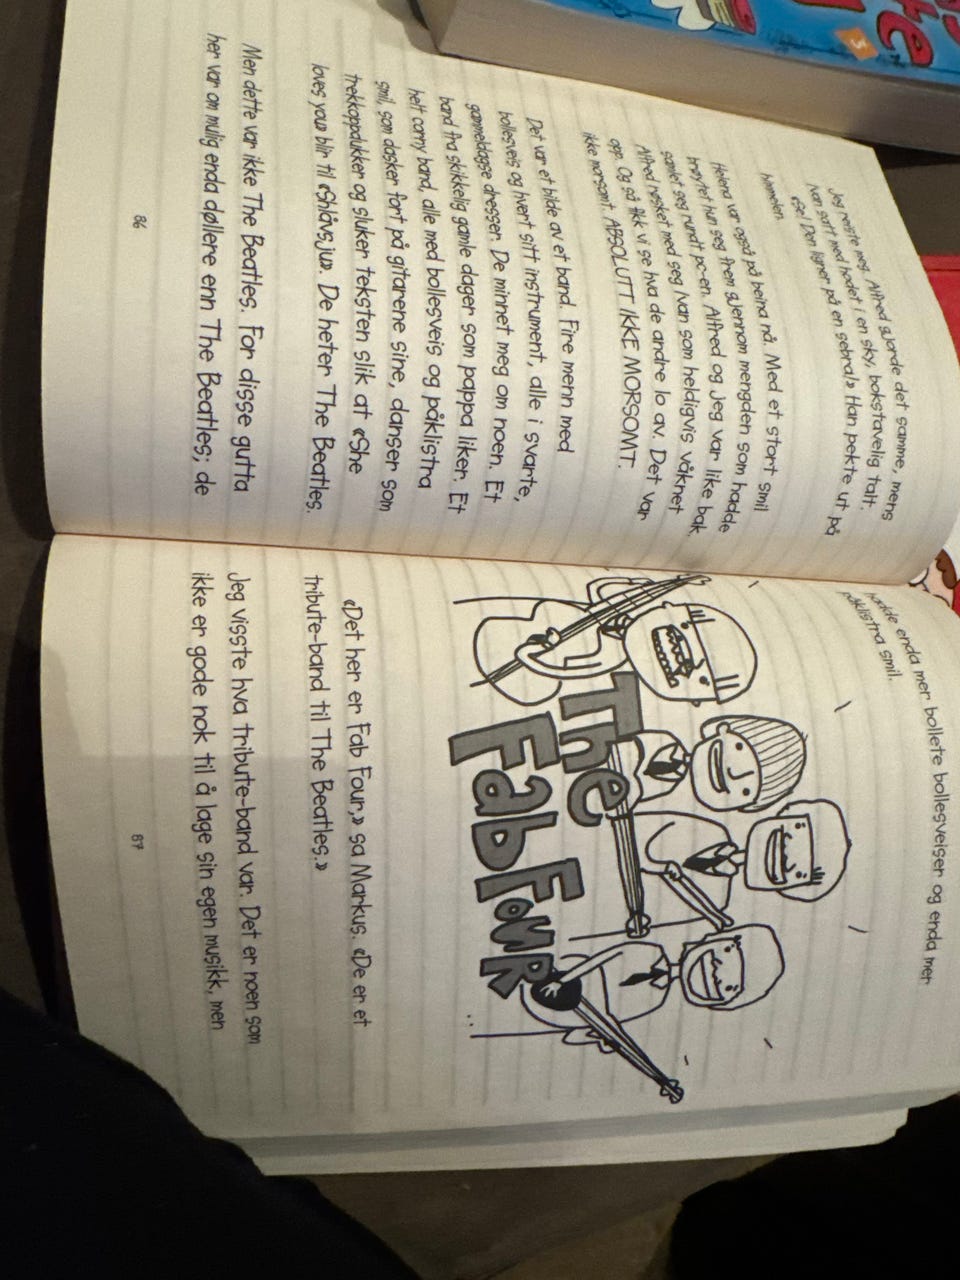 Jeg reiste meg. Alfred gjorde det samme, mens
Ivan satt med hodet i en sky, bokstavelig talt.
«Se! Den ligner på en sebra!» Han pekte ut på
himmelen.
Helena var også på beina nå. Med et stort smil
brøytet hun seg frem gjennom mengden som hadde
samlet seg rundt pc-en. Alfred og jeg var like bak.
Alfred røsket med seg Ivan som heldigvis våknet
opp. Og så fikk vi se hva de andre lo av. Det var
ikke morsomt. ABSOLUTT IKKE MORSOMT.
Det var et bilde av et band. Fire menn med
bollesveis og hvert sitt instrument, alle i svarte,
gammeldagse dresser. De minnet meg om noen. Et
band fra skikkelig gamle dager som pappa liker. Et
helt corny band, alle med bollesveis og påklistra
smil, som dasker fort på gitarene sine, danser som
trekkoppdukker og sluker teksten slik at «She
loves you» blir til «Shlåvsju». De heter The Beatles.
Men dette var ikke The Beatles. For disse gutta
her var om mulig enda døllere enn The Beatles; de
86
hadde enda mer bollete bollesveiser og enda mer
påklistra smil.
The
Fab Four
«Det her er Fab Four,» sa Markus. «De er et
tribute-band til The Beatles.»
Jeg visste hva tribute-band var. Det er noen som
ikke er gode nok til å lage sin egen musikk, men
87
3